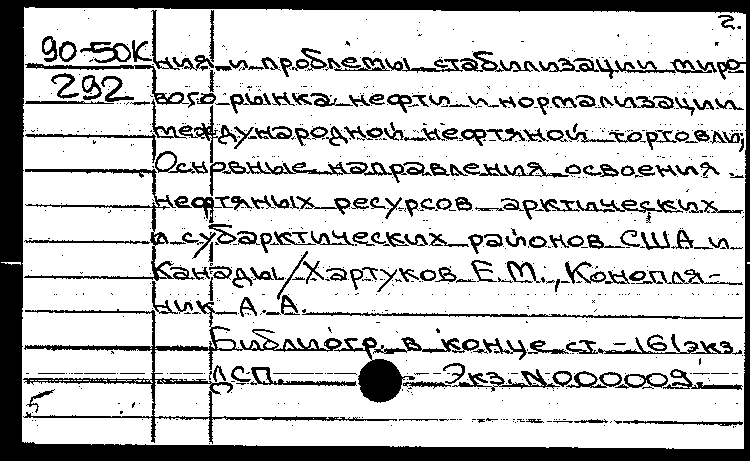 2.
90-50К
292
ния и проблемы стабилизации миро
вого рынка нефти и нормализации
международной нефтяной торговли;
Основные направления освоения
нефтяных ресурсов арктических
и субарктических районов США и
Канады/Хартуков Е.М., Конопля-
ник А.А.
Библиогр. в конце ст. - 161экз.
ДСП. - Экз. N000009.
5